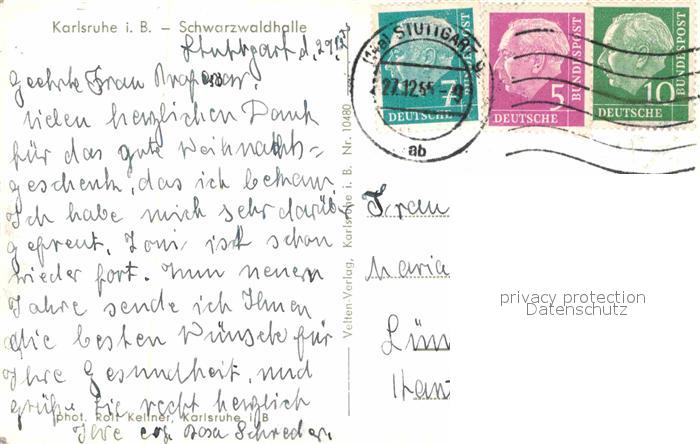 Karlsruhe i. B. – Schwarzwaldhalle
Stuttgart d. 27.
Geehrte Frau Professor,
vielen herzlichen Dank
für das gute Weihnachts=
geschenk, das ich bekam.
Ich habe mich sehr darüber
gefreut. Toni ist schon
wieder fort. Zum neuen
Jahre sende ich Ihnen
die besten Wünsche für
Ihre Gesundheit, und
grüße Sie recht herzlich
phot. Rolf Kellner, Karlsruhe i B
Ihre Rosa Schreder.
Velten-Verlag, Karlsruhe i. B. Nr. 10480
STUTTGART 9
27.12.55-9
ab
7
DEUTSCHE
5
DEUTSCHE BUNDESPOST
10
DEUTSCHE BUNDESPOST
Frau
Maria
privacy protection
Datenschutz